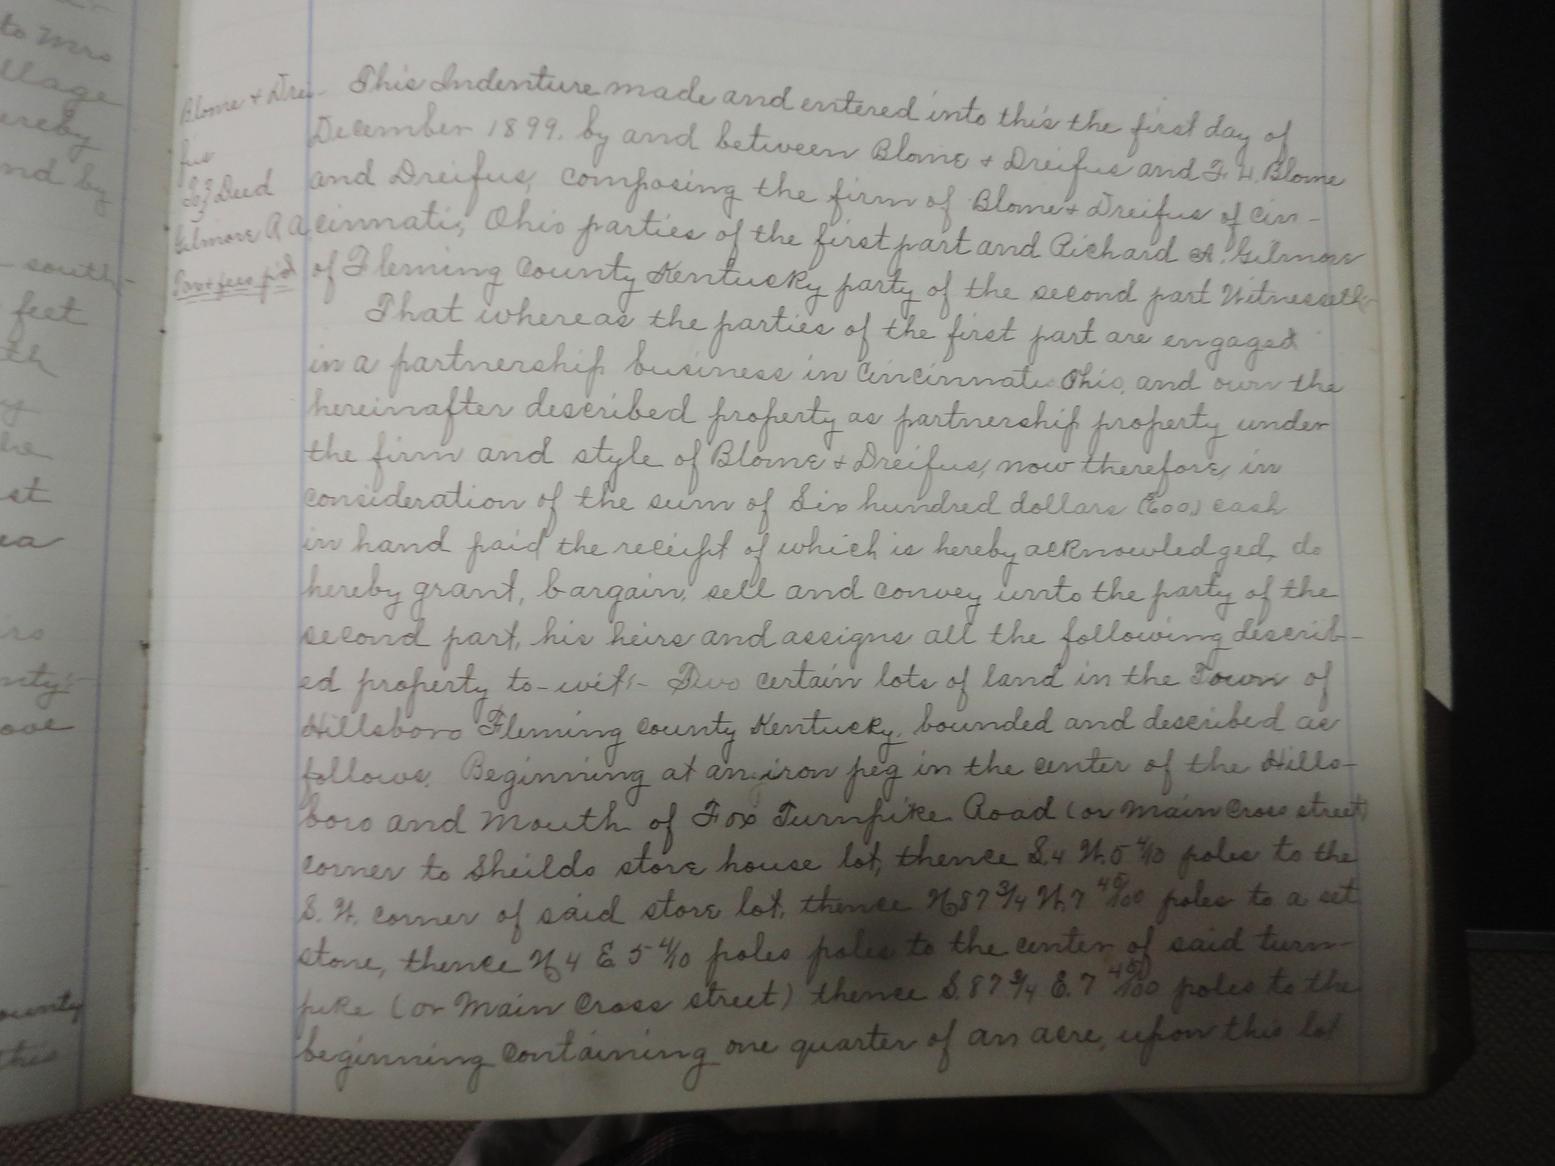 to Mrs
llage
ereby
nd by
south-
feet
th
y
he
st
ea
iro
nty:-
ove
ounty
this
Blome & Drei-
fus
To} Deed
Gilmore R A
Tax & fees p'd
This Indenture made and entered into this the first day of
December 1899. by and between Blome & Dreifus and F. H. Blome
and Dreifus, composing the firm of Blome & Dreifus of Cin-
cinnati, Ohio parties of the first part and Richard A. Gilmore
of Fleming County Kentucky party of the second part Witnesseth-
That whereas the parties of the first part are engaged
in a partnership business in Cincinnati Ohio, and own the
hereinafter described property as partnership property under
the firm and style of Blome & Dreifus, now therefore, in
consideration of the sum of Six hundred dollars (600) cash
in hand paid the receipt of which is hereby acknowledged, do
hereby grant, bargain, sell and convey unto the party of the
second part, his heirs and assigns all the following describ-
ed property to-wit:- Two certain lots of land in the Town of
Hillsboro Fleming County Kentucky, bounded and described as
follows. Beginning at an iron peg in the center of the Hills-
boro and Mouth of Fox Turnpike Road (or Main Cross street)
corner to Sheilds store house lot, thence S. 4 W. 5 4/10 poles to the
S. W. corner of said store lot, thence N 87 3/4 W. 7 40/100 poles to a set
stone, thence N 4 E 5 4/10 poles poles to the center of said turn-
pike (or Main Cross street) thence S. 87 3/4 E. 7 40/100 poles to the
beginning containing one quarter of an acre, upon this lot